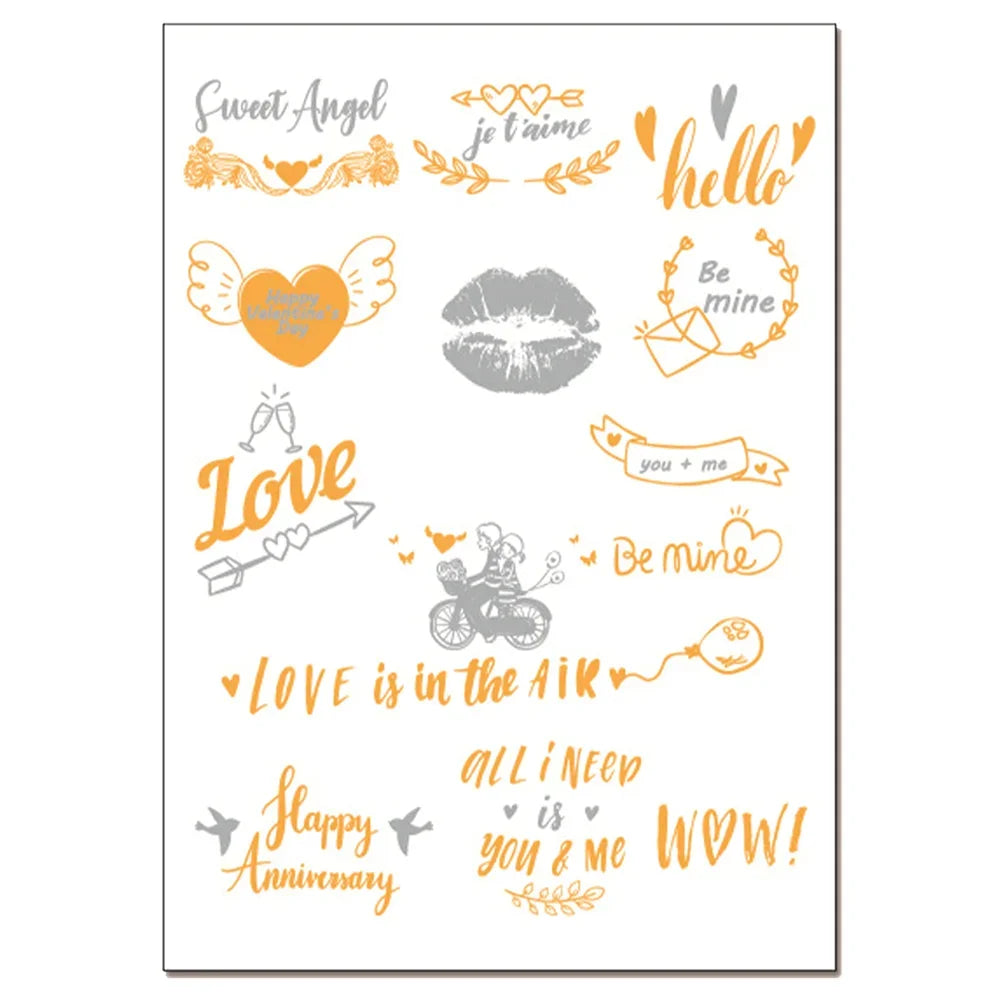 Sweet Angel
je t'aime
hello
Happy
Valentine's
Day
Be
mine
Love
you + me
Be mine
LOVE is in the AIR
Happy
Anniversary
ALL i NEED
is
YOU & ME
WOW!